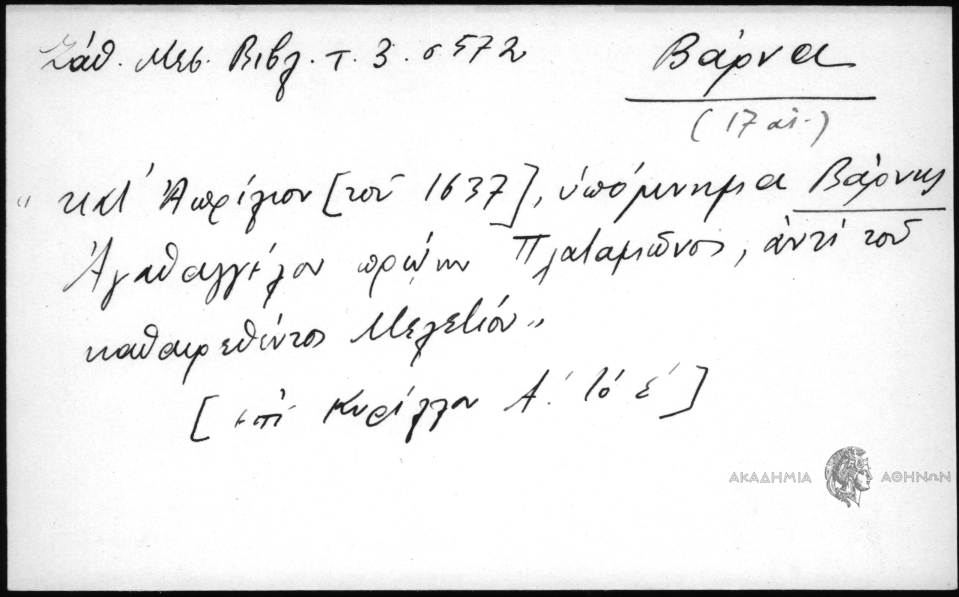 Σάθ. Μεσ. Βιβλ. τ. 3. σ 572
Βάρνα
(17 αἰ.)
"κατ' Ἀπρίλιον [τοῦ 1637], ὑπόμνημα Βάρνης
Ἀγαθαγγέλου πρώην Πλαταμῶνος, ἀντὶ τοῦ
καθαιρεθέντος Μελετίου"
[ἐπὶ Κυρίλλου Α΄. τὸ ε΄]
ΑΚΑΔΗΜΙΑ ΑΘΗΝΩΝ